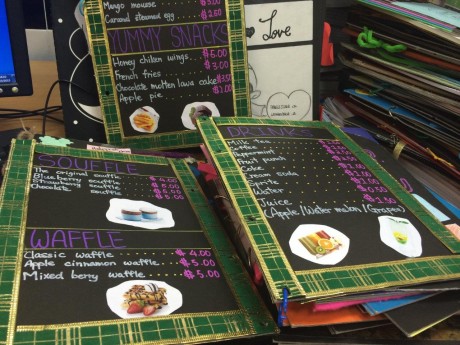 Mango mousse ...... $3.00
Caramel steamed egg ..... $2.50
YUMMY SNACKS
Honey chiken wings... $5.00
French fries ..... $3.00
Chocolate molten lava cake $3.50
Apple pie ..... $1.00
Love
SOUFFLE
The original souffle
Blueberry souffle
Strawberry souffle $5.00
Chocolate souffle $5.00
WAFFLE
Classic waffle ..... $4.00
Apple cinnamon waffle .... $5.00
Mixed berry waffle .... $5.00
Milk tea
Coffee
Peppermint
Fruit punch
Coke
Cream soda
Sprite
Water
Juice
(Apple/Water melon/Grapes)